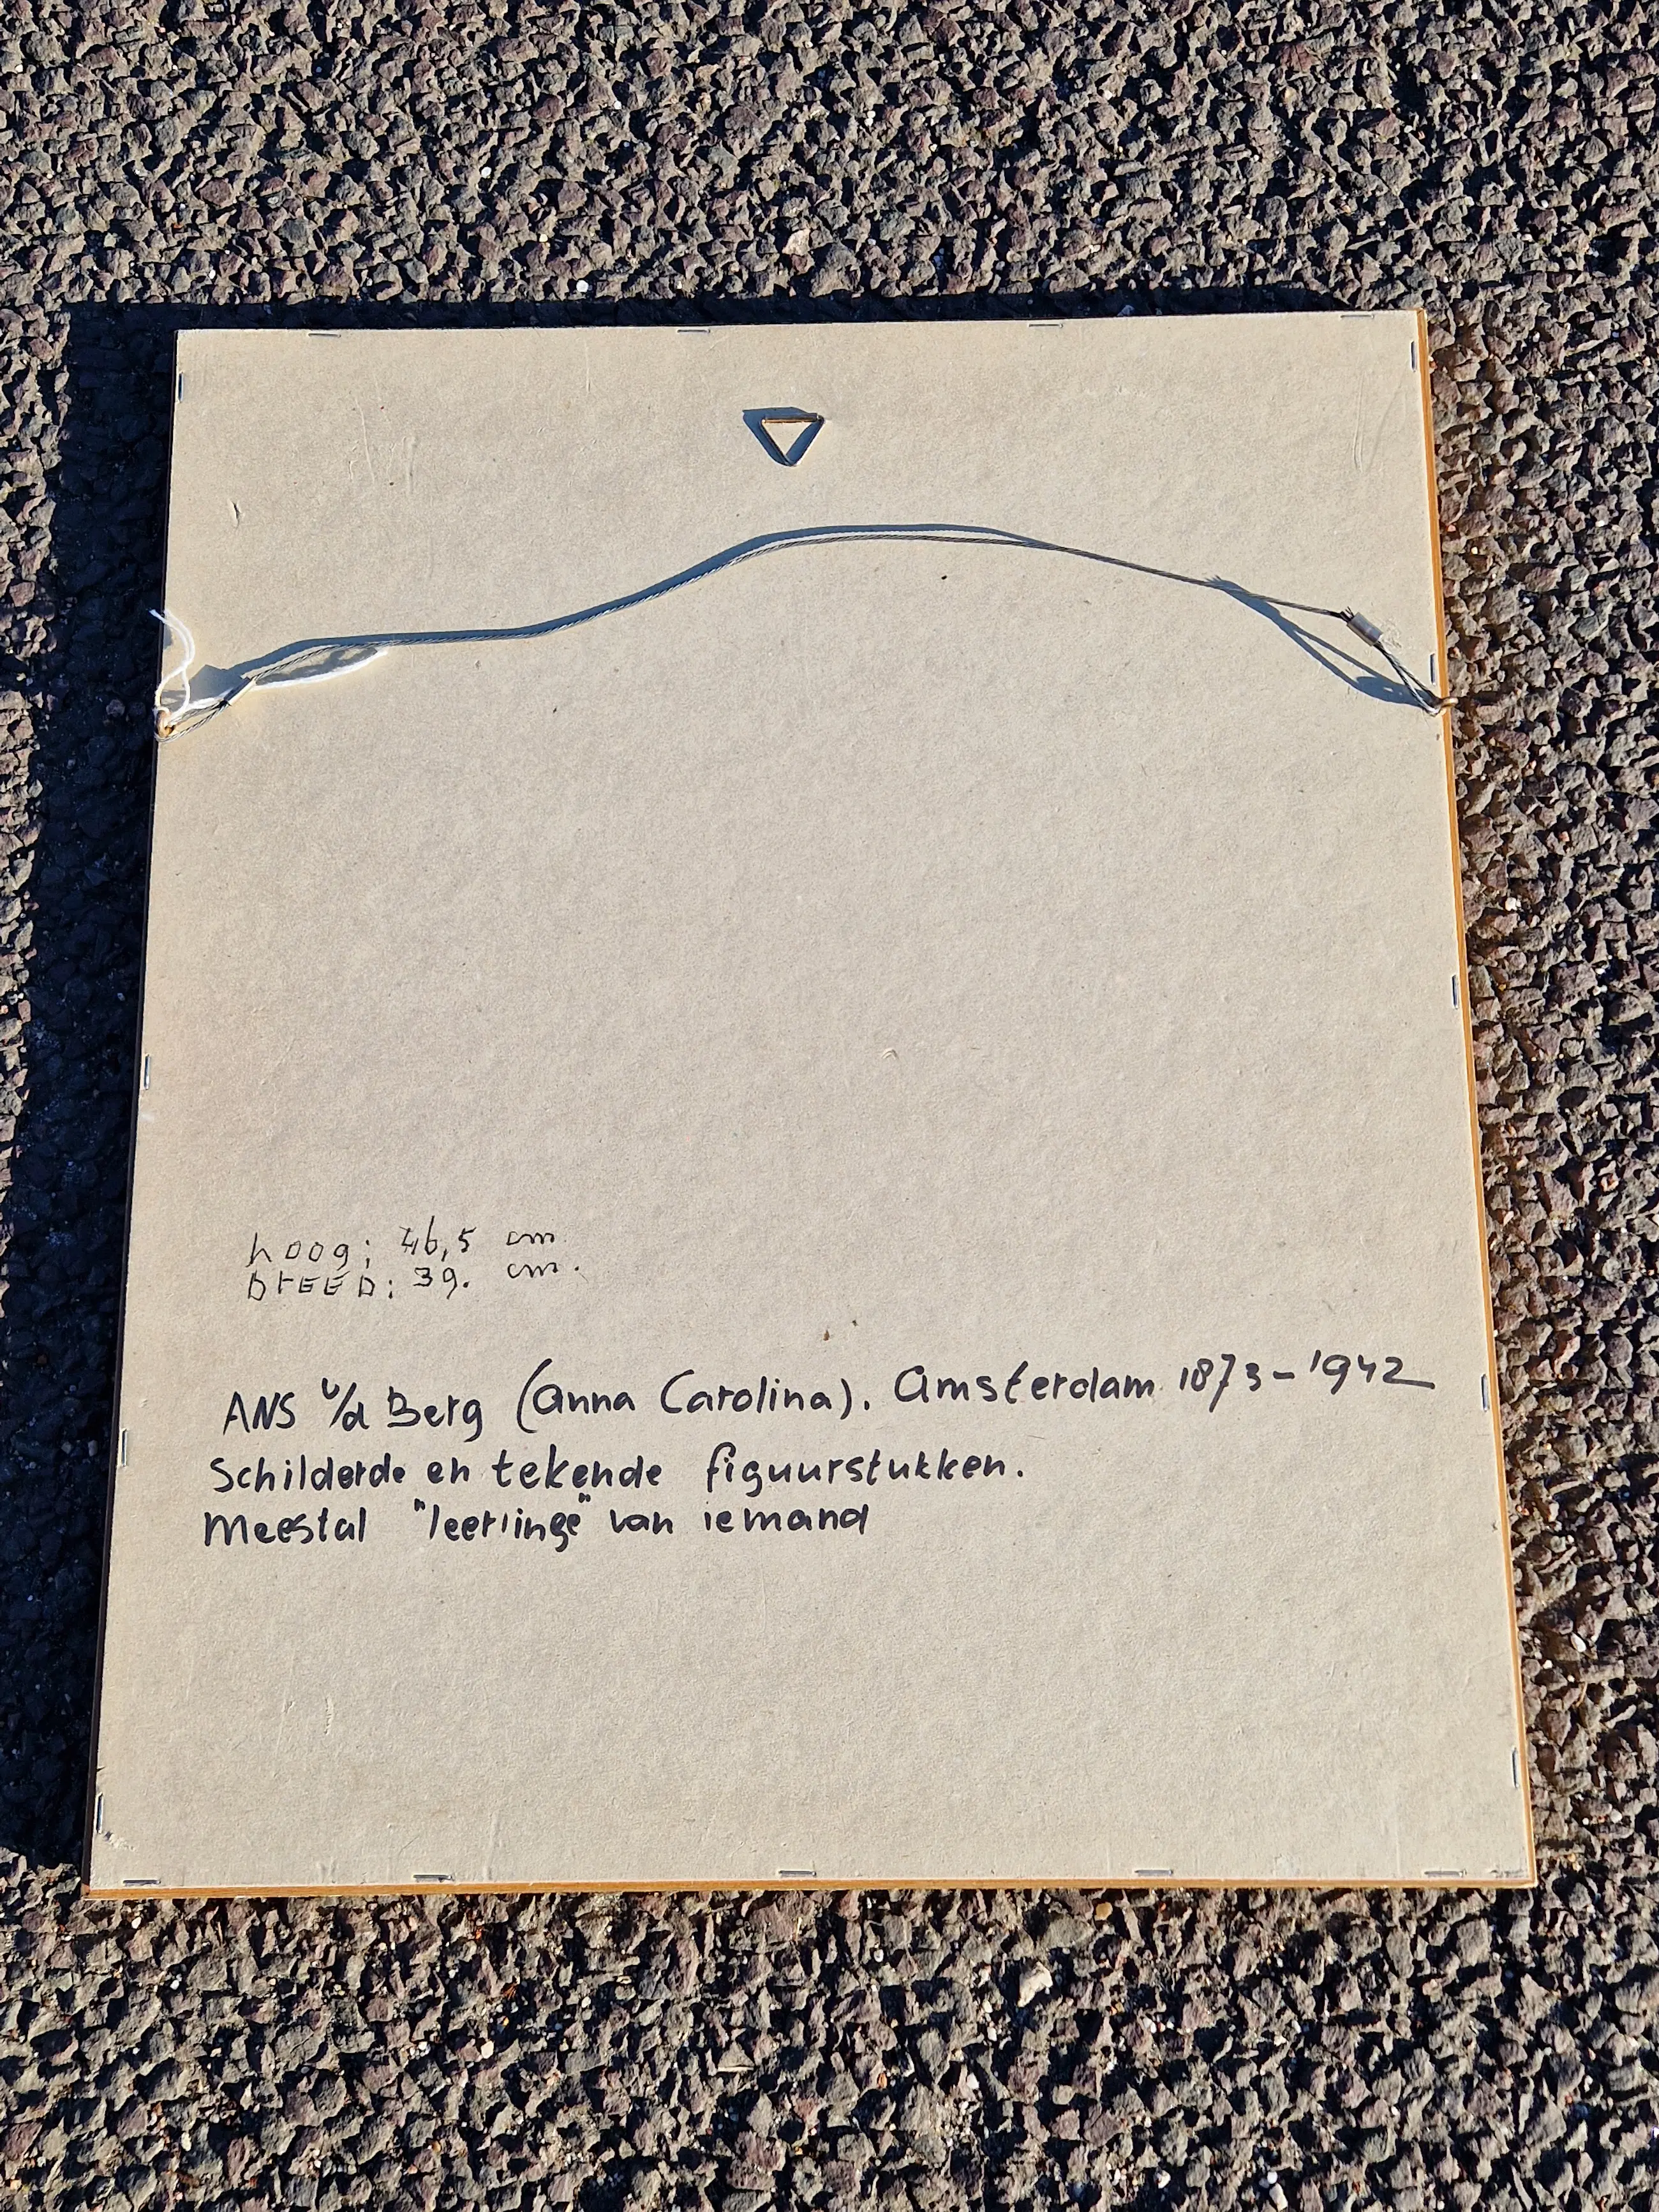 hoog: 46,5 cm.
BrEED: 39. cm.
ANS v/d Berg (Anna Carolina). Amsterdam 1873-1942
Schilderde en tekende figuurstukken.
Meestal "leerlinge" van iemand